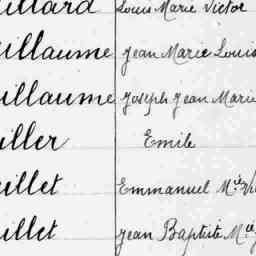 illard Louis Marie Victor
uillaume Jean Marie Louis
uillaume Joseph Jean Marie
iller Emile
uillet Emmanuel Mie Vi
uillet Jean Baptiste Mie J